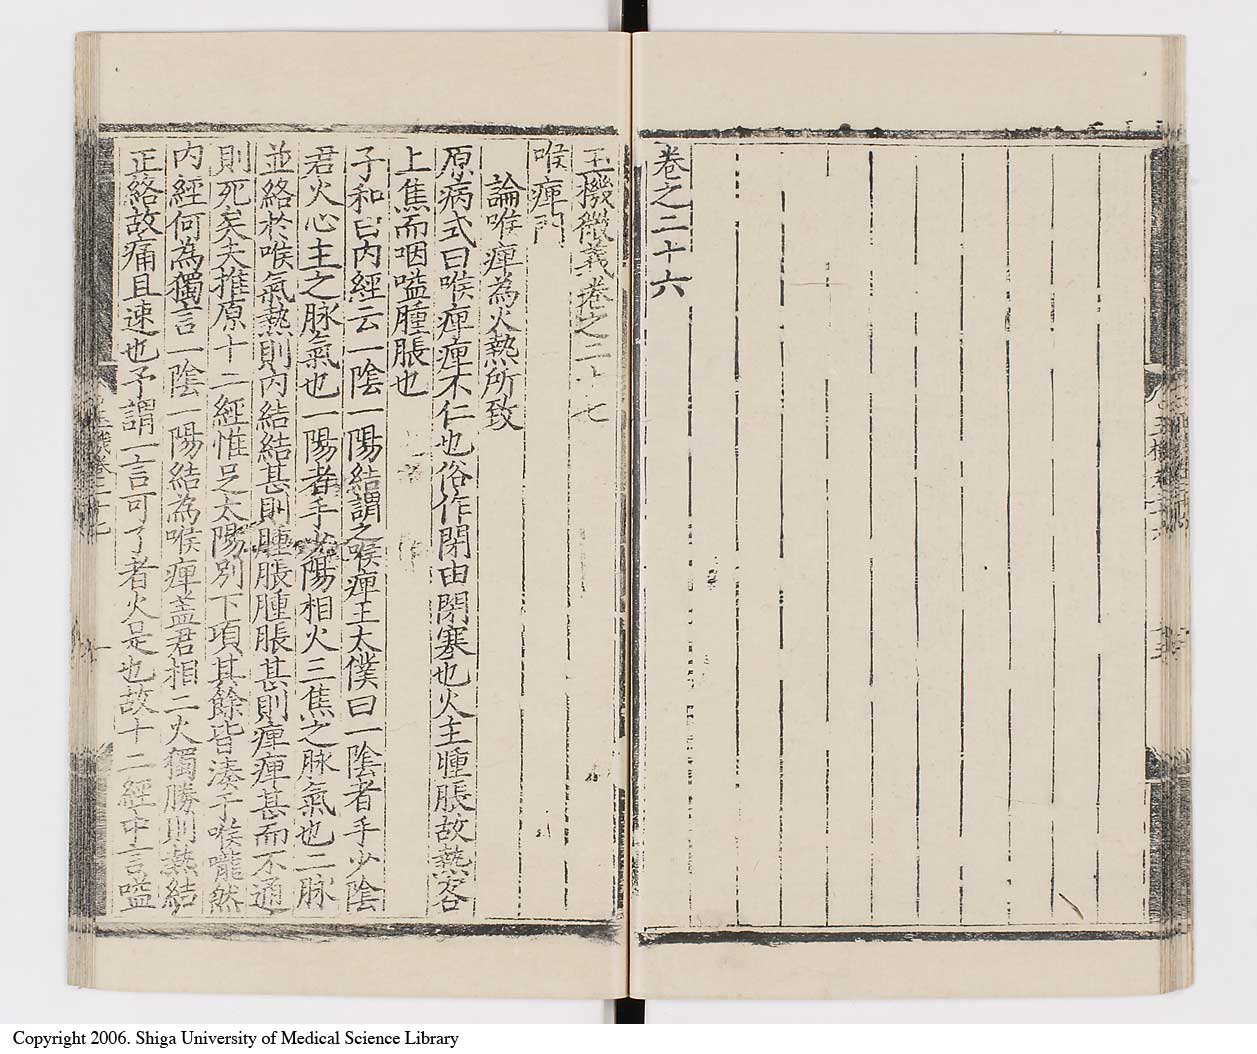 卷之二十六
玉機微義卷之二十七
喉痺門
論喉痺為火熱所致
原病式曰喉痺痺不仁也俗作閉由閉塞也火主腫脹故熱客
上焦而咽嗌腫脹也
子和曰內經云一陰一陽結謂之喉痺王太僕曰一陰者手少陰
君火心主之脉氣也一陽者手少陽相火三焦之脉氣也二脉
並絡於喉氣熱則內結結甚則腫脹腫脹甚則痺痺甚而不通
則死矣夫推原十二經惟足太陽別下項其餘皆湊于喉嚨然
內經何為獨言一陰一陽結為喉痺盖君相二火獨勝則熱結
正絡故痛且速也予謂一言可了者火是也故十二經中言嗌
Copyright 2006. Shiga University of Medical Science Library